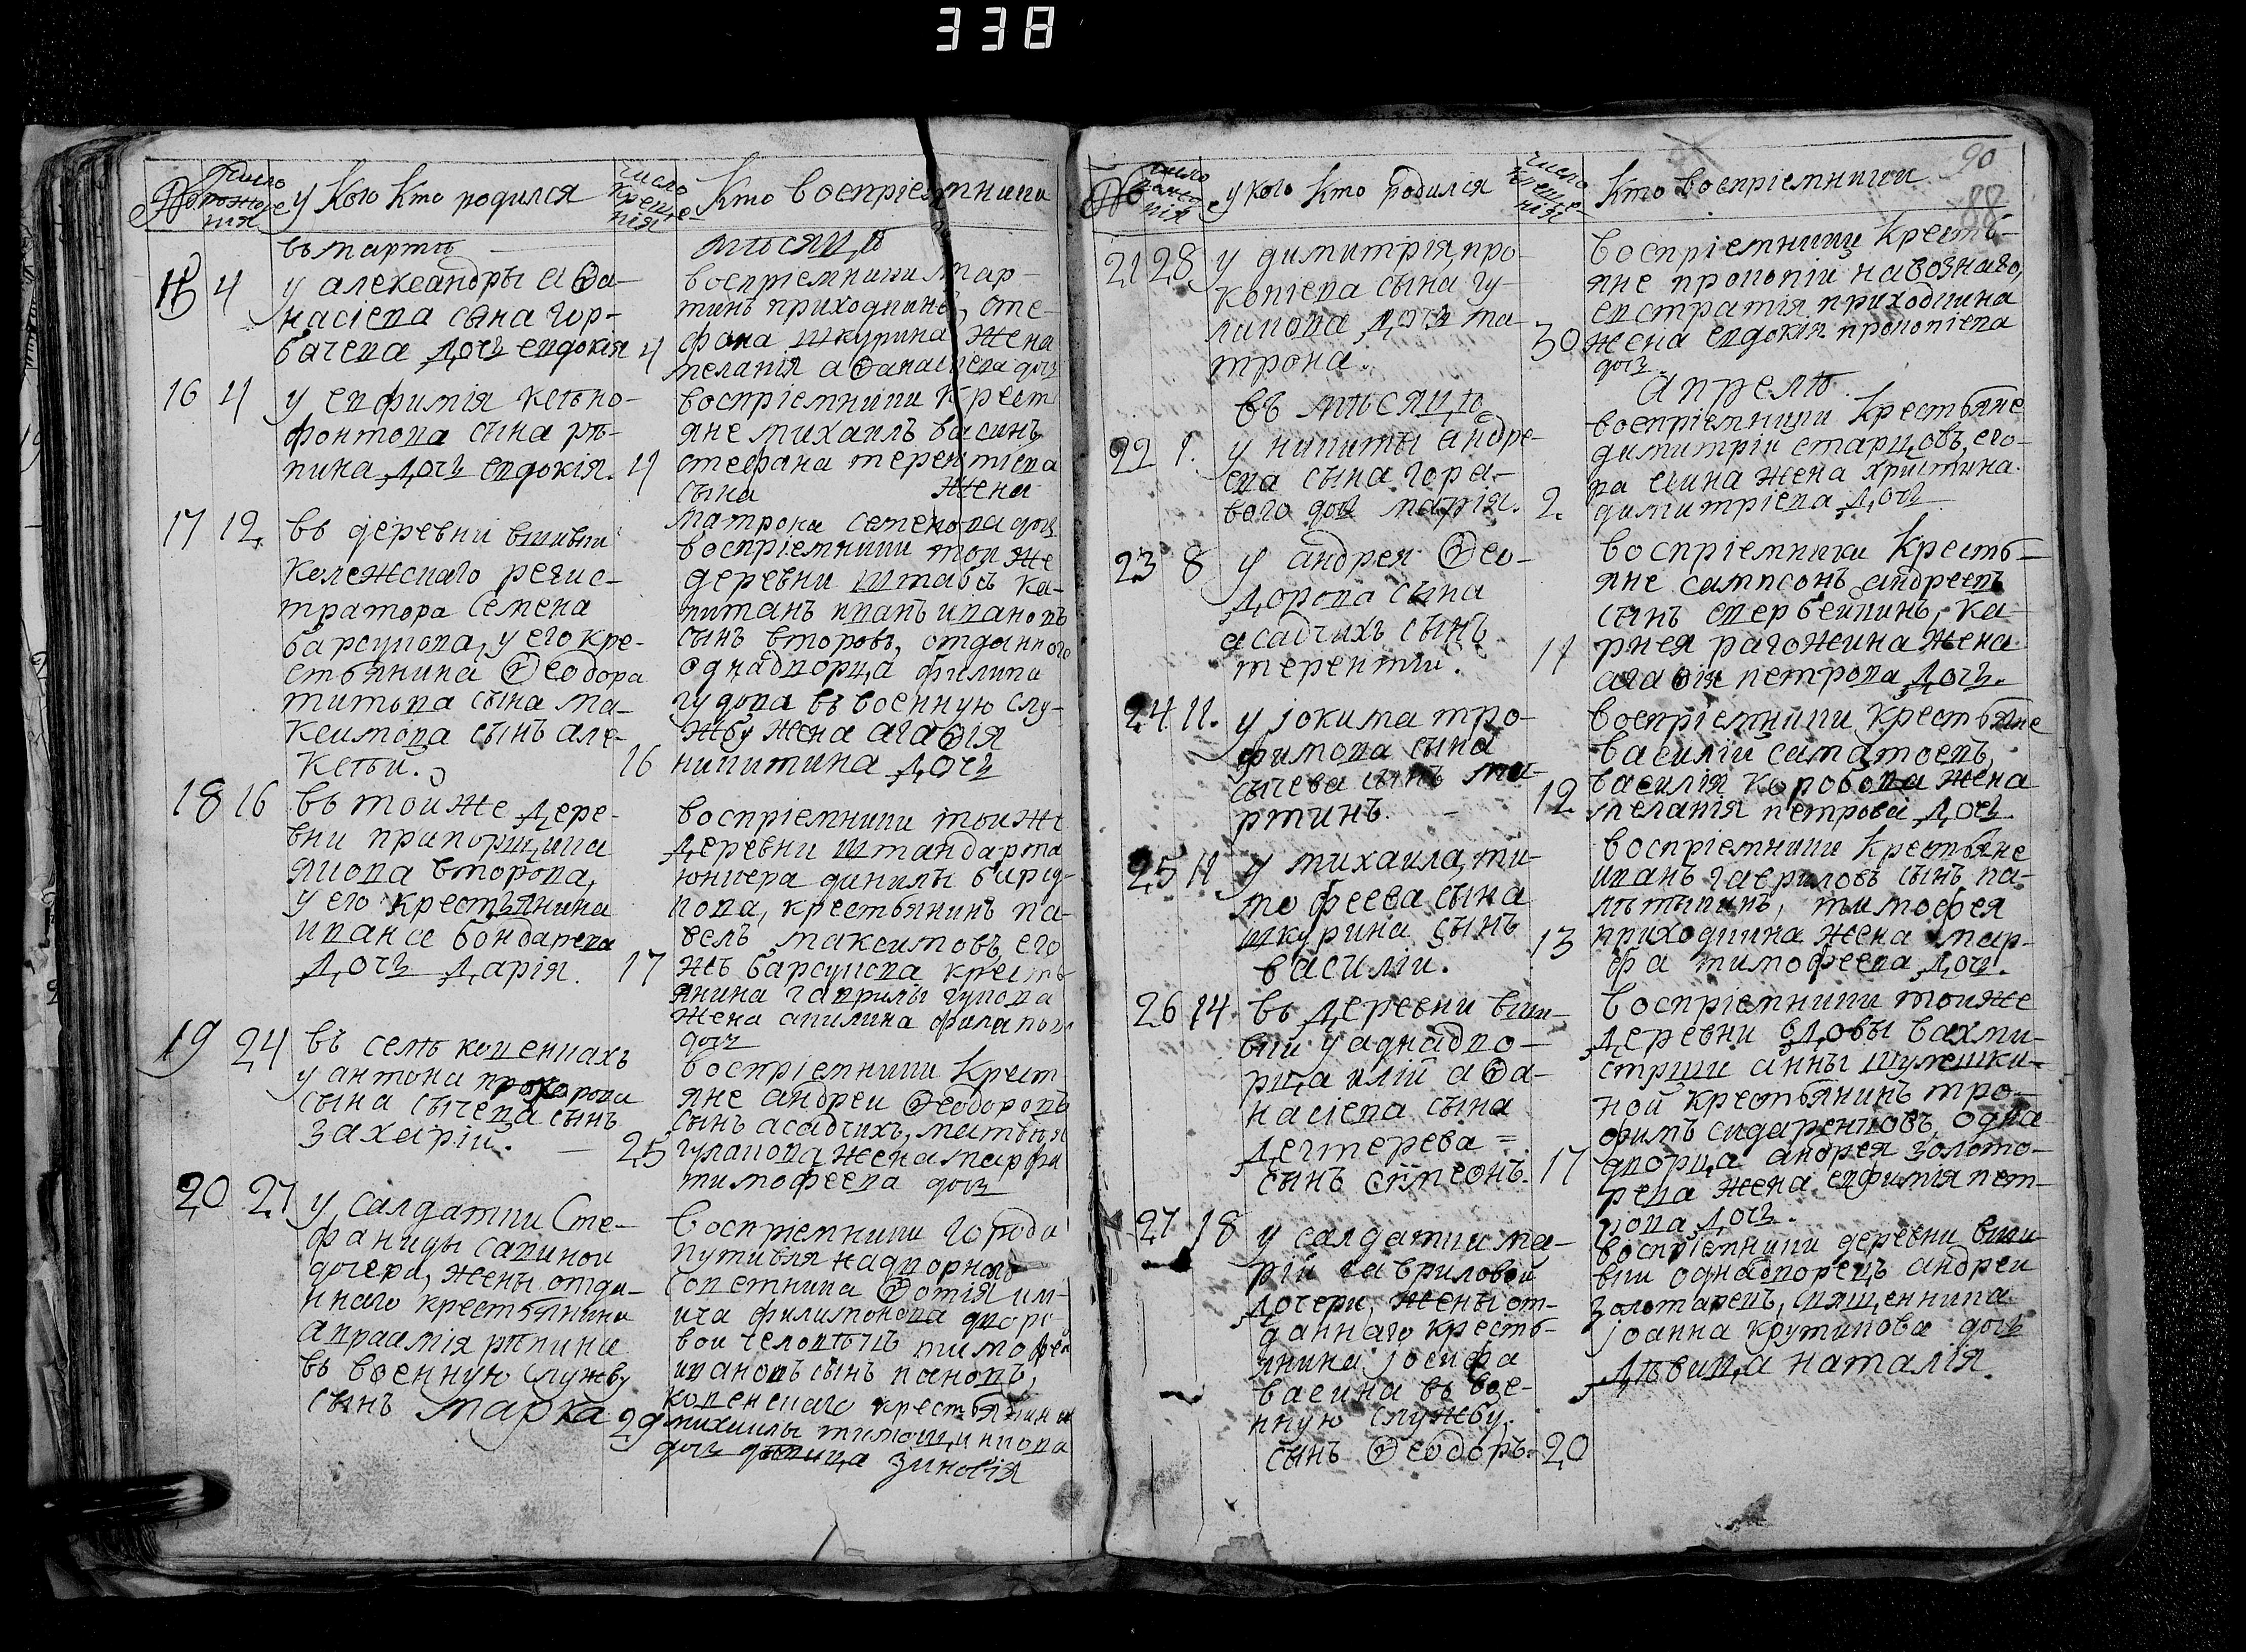 338
№
число рождения
у кого кто родился
число крещения
кто восприемники
въ мартѣ
мѣсяцѣ
15 4
у александры аѳа-
насіева сына гор-
бачева дочь евдокія
4
восприемники мар-
тинъ приходкинъ, сте-
фана шкурина жена
меланія аѳанасиева дочь
16 4
у евфимія ксено-
фонтова сына рѣ-
пина дочь евдокія.
4
восприемники крест
яне михаилъ васинъ
стефана терентиева
сына жена
матрона семенова дочь
17 12
въ деревни вшивки
колежскаго регис-
тратора семена
барсукова, у его кре-
стьянина ѳеодора
титова сына ма-
ксимова сынъ але-
ксѣй.
16
восприемники той же
деревни штабсъ ка-
питанъ иванъ ивановъ
сынъ второвъ, отданного
однадворца филипа
гудова въ военную слу-
жбу жена агаѳія
никитина дочь
18 16
въ той же дере-
вни прапорщика
якова второва,
у его крестьянина
ивана бондарева
дочь дарія.
17
восприемники той же
деревни штандарта
юнкера данилы барсу-
кова, крестьянинъ па-
велъ максимовъ, его
жъ барсукова кресть
янина гаврилы гукова
жена акилина филапова
дочь
19 24
въ семъ коренкахъ
у антона прохорова
сына сычева сынъ
захарій.
25
восприемники крест
яне андрей ѳеодоровъ
сынъ асадчихъ, матвѣя
гулакова жена марфа
тимофеева дочь
20 27
у салдатки сте-
фаниды савиной
дочери, жены отда-
ннаго крестьянина
авраамія рѣпина
въ военную службу
сынъ марка
29
восприемники города
путивля надворнаго
советника ѳотія
филимонова дворо-
вой человѣкъ тимофей
ивановъ сынъ пановъ,
крестьянина
михаилы
дочь дѣвица зиновія
90
88
№
число рождения
у кого кто родился
число крещения
кто восприемники
21 28
у димитрія про-
копіева сына гу-
лакова дочь ма-
трона.
30
восприемники кресть-
яне прокопій навознаго,
евстратія приходкина
жена евдокія прокопіева
дочь
въ мѣсяцѣ
апрелѣ
22 1.
у никиты андре-
ева сына гора-
вого дочь марія.
2.
восприемники крестьяне
димитрій старцовъ, его-
ра сина жена христина
димитріева дочь
23 8
у андрея ѳео-
дорова сына
асадчихъ сынъ
терентий.
11
восприемники кресть-
яне сампсонъ андреевъ
сынъ свербейкинъ, ка-
рнея рагожина жена
агаѳія петрова дочь.
24 11.
у іокима тро-
фимова сына
сычева сынъ ма-
ртинъ.
12
восприемники крестьяне
василій
василія коробова жена
меланія петрова дочь.
25 11
у михаила ти-
мофеева сына
шкурина сынъ
василій.
13
восприемники крестьяне
иванъ гавриловъ сынъ ла-
тимофея
приходкина жена мар-
фа тимофеева дочь.
26 14.
въ деревни вши-
вки у аднадво-
рца илій аѳа-
насіева сына
дегтерева =
сынъ симеонъ.
17
восприемники той же
деревни вдовы вахми-
стрши анны шулешки-
ной крестьянинъ тро-
фимъ сидаренковъ, одна
дворца андрея золото-
рева жена евфимія пет-
рова дочь.
27 18
у салдатки ма-
рій гавриловой
дочери, жены от-
даннаго кресть-
янина іосифа
васина въ вое-
нную службу
сынъ ѳеодоръ.
20
восприемники деревни вши-
вки однадворецъ андрей
золотаревъ, священника
іоанна крутикова дочь
дѣвица наталія.